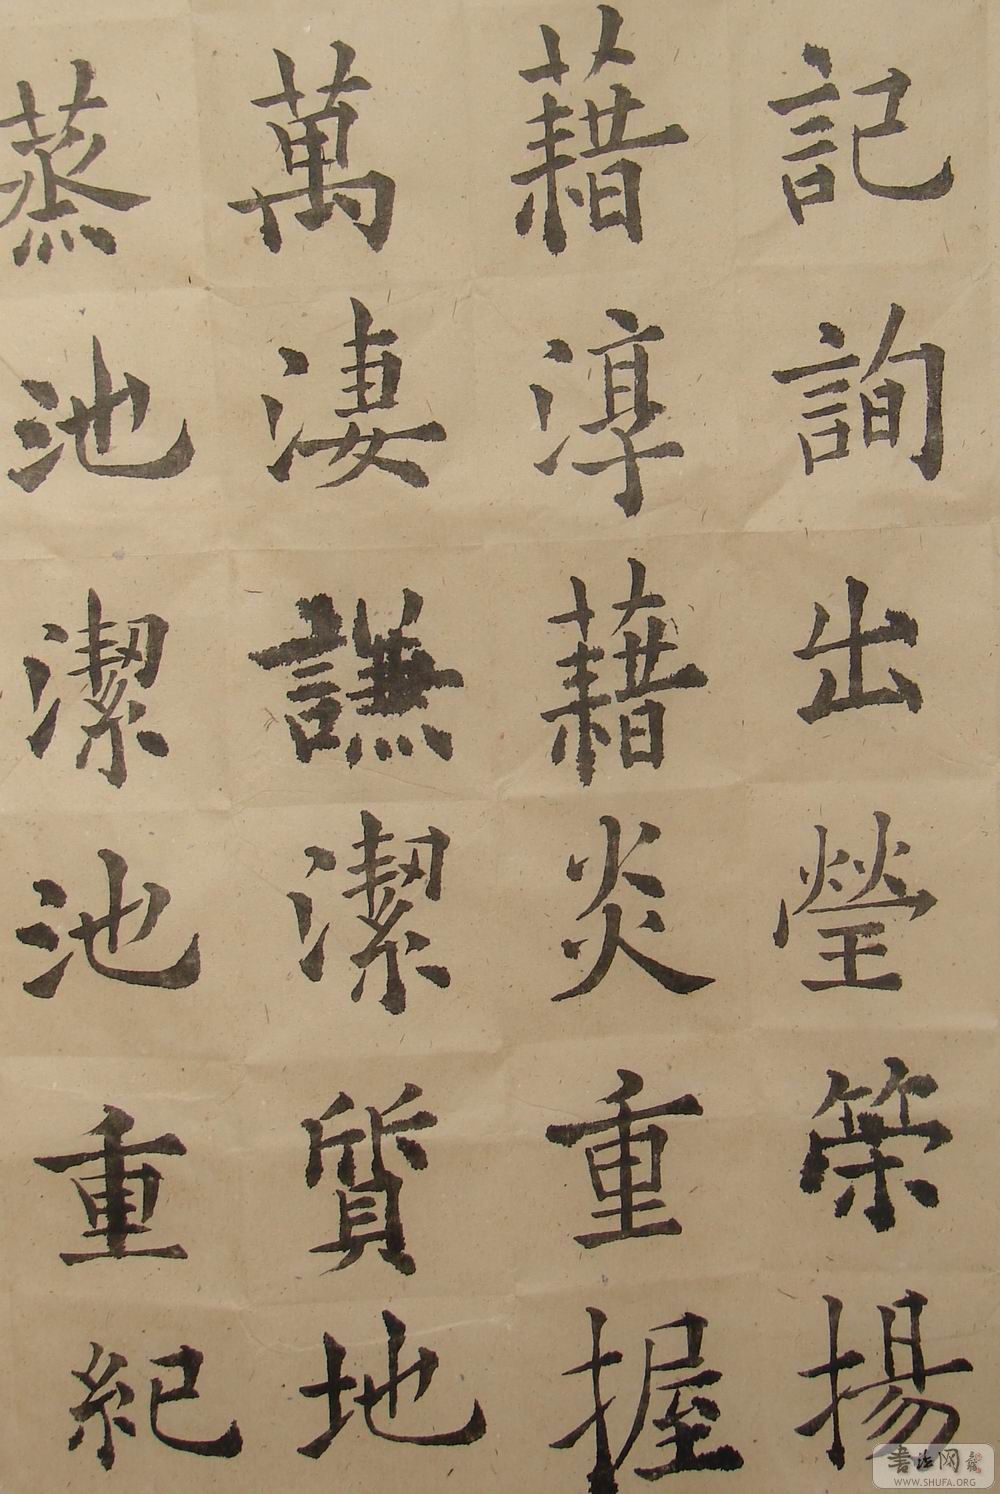 記詢出瑩榮揚
藉淳藉炎重握
萬凄謙潔質地
蒸池潔池重紀
書法网
WWW.SHUFA.ORG